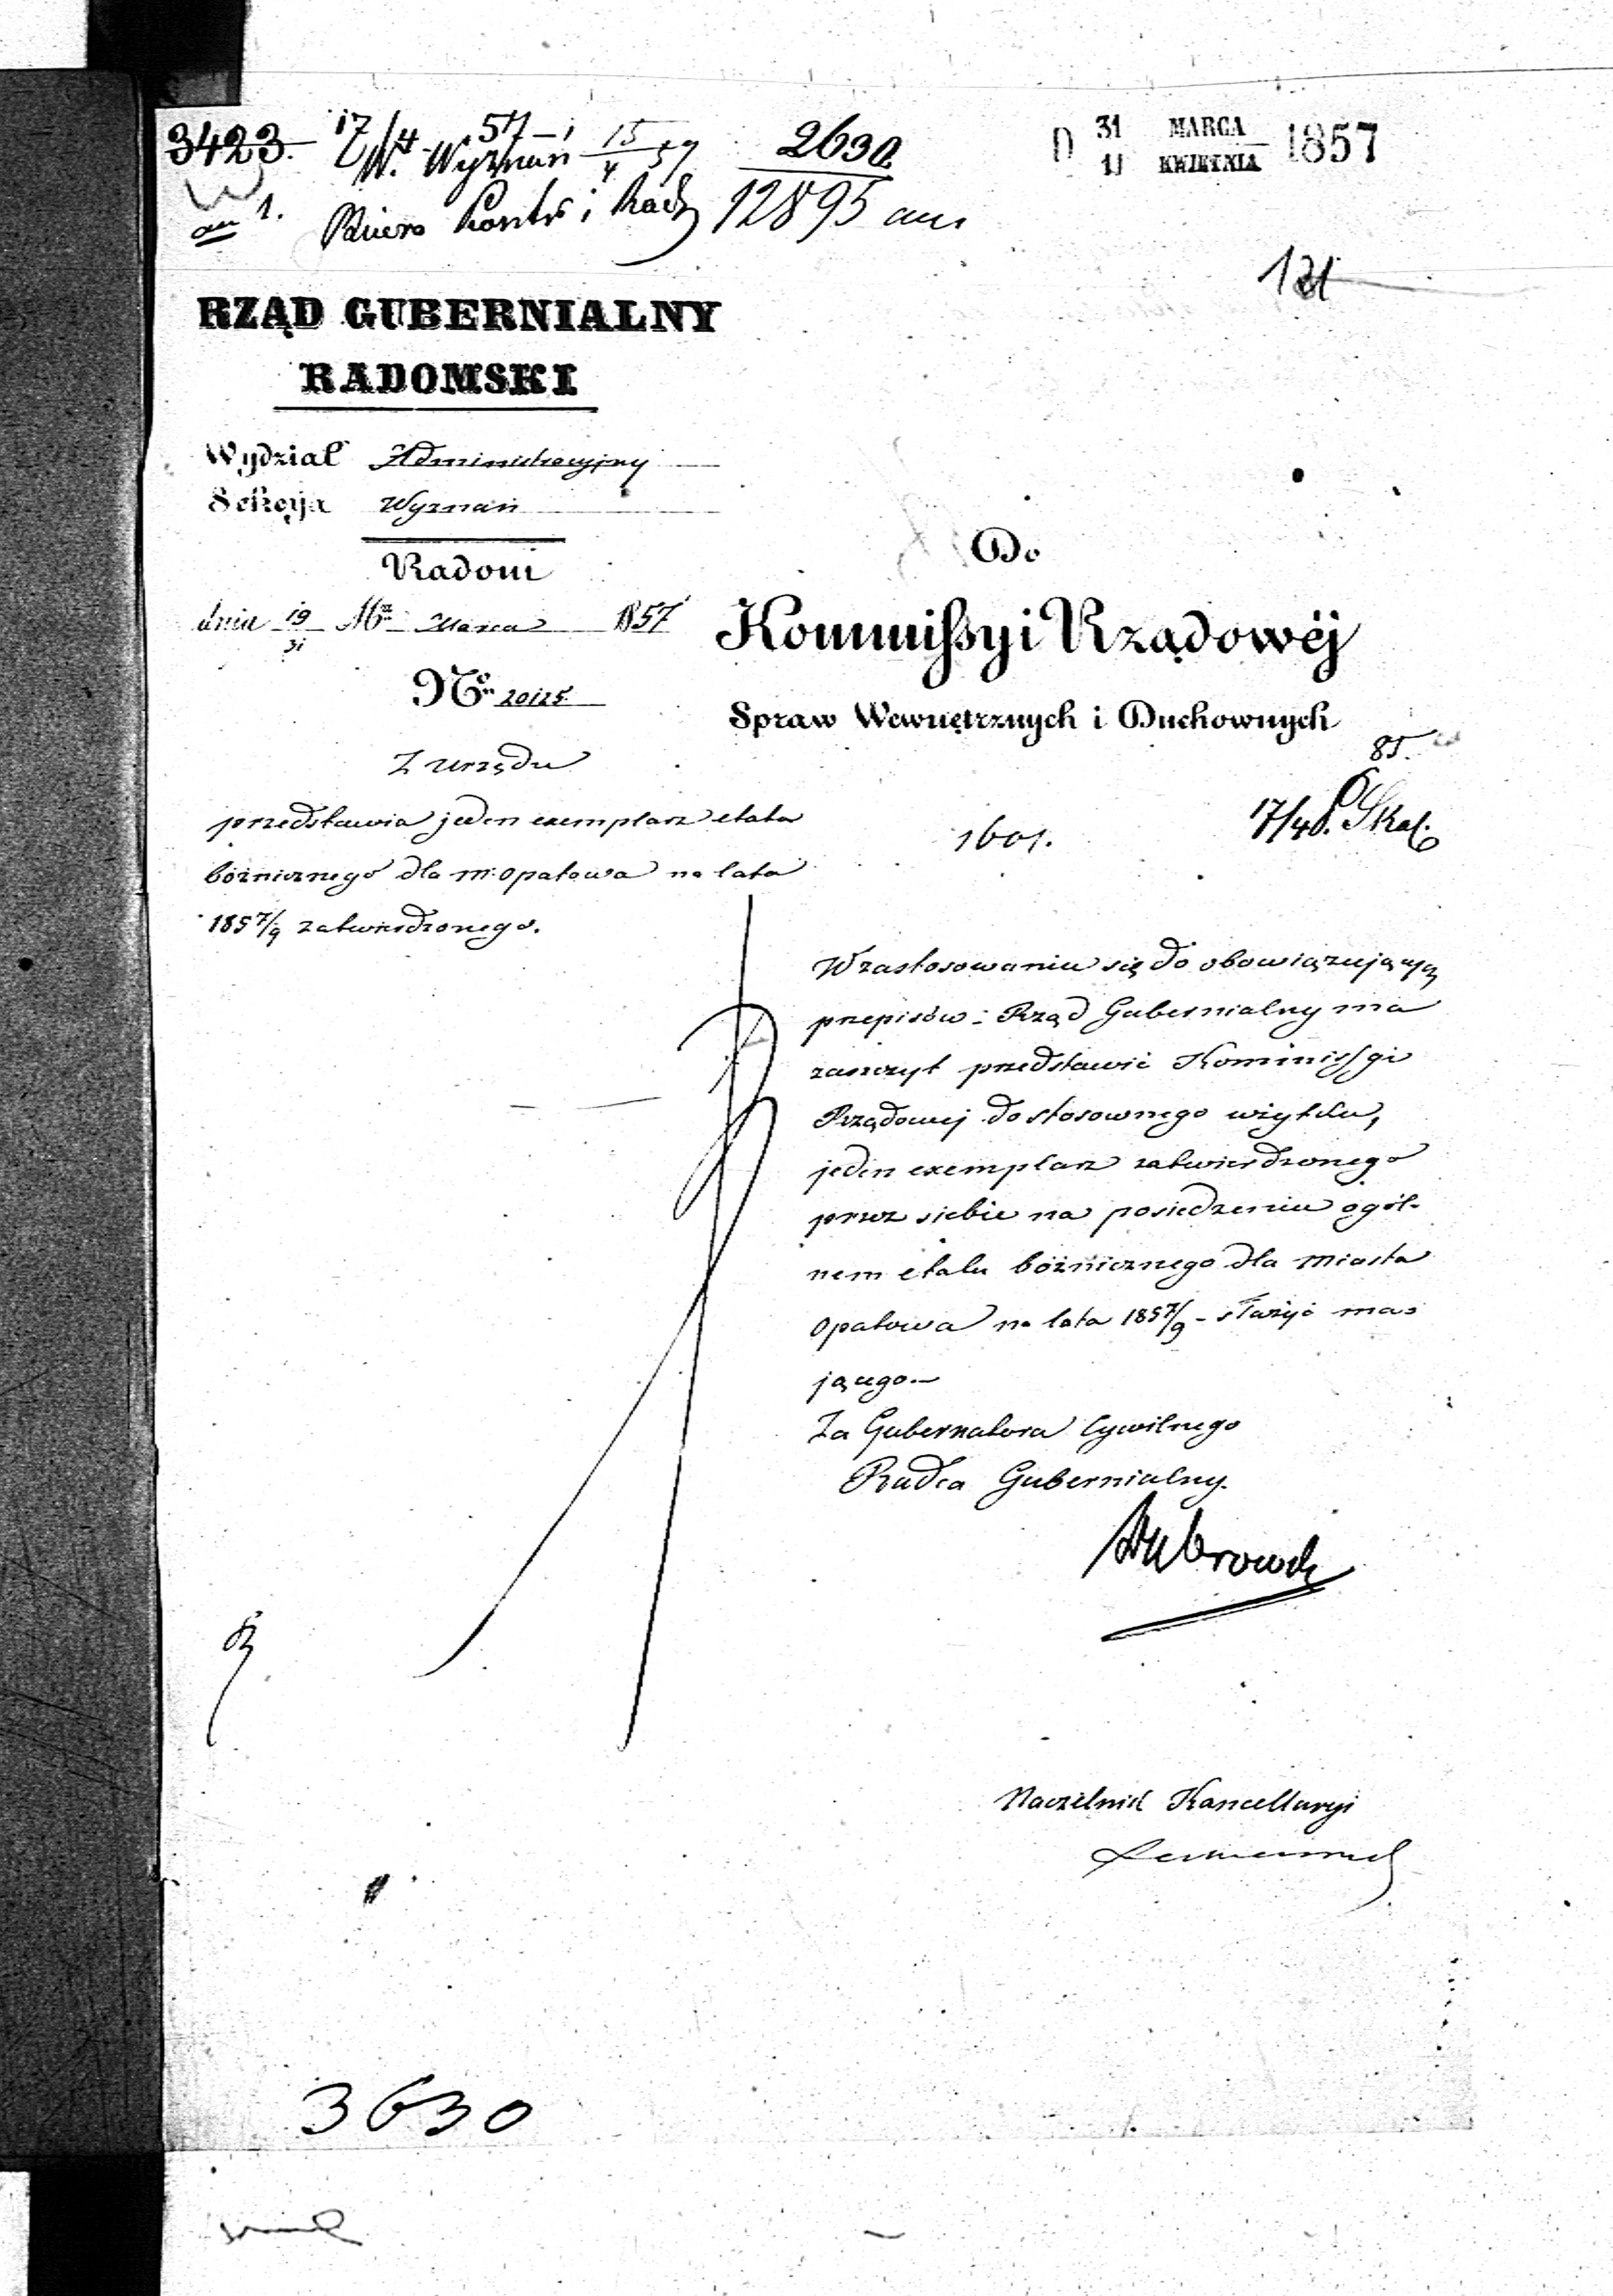 3423. 17/4 57 – 1 15/4 57 2630 D 31 MARCA 1857
W. Wyznań 11 KWIETNIA
an 1. Biuro Kontr i Rach 12895 ani
121
RZĄD GUBERNIALNY
RADOMSKI
Wydział Administracyjny
Sekcya Wyznań
Radom
dnia 19/31 Mca Marca 1857
No 20125
Z urzędu
przedstawia jeden exemplarz etatu
bóżnicznego dla m. Opatowa na lata
1857/9 zatwierdzonego.
Do
Kommissyi Rządowéj
Spraw Wewnętrznych i Duchownych
85.
17/4
1601.
W zastosowaniu się do obowiązujących
przepisów: Rząd Gubernialny ma
zaszczyt przedstawić Kommissyi
Rządowej do stosownego użytku,
jeden exemplarz zatwierdzonego
przez siebie na posiedzeniu ogól-
nem etatu bóżnicznego dla miasta
Opatowa na lata 1857/9 – służyć ma-
jącego.–
Za Gubernatora Cywilnego
Radca Gubernialny.
Naczelnik Kancellaryi
3630